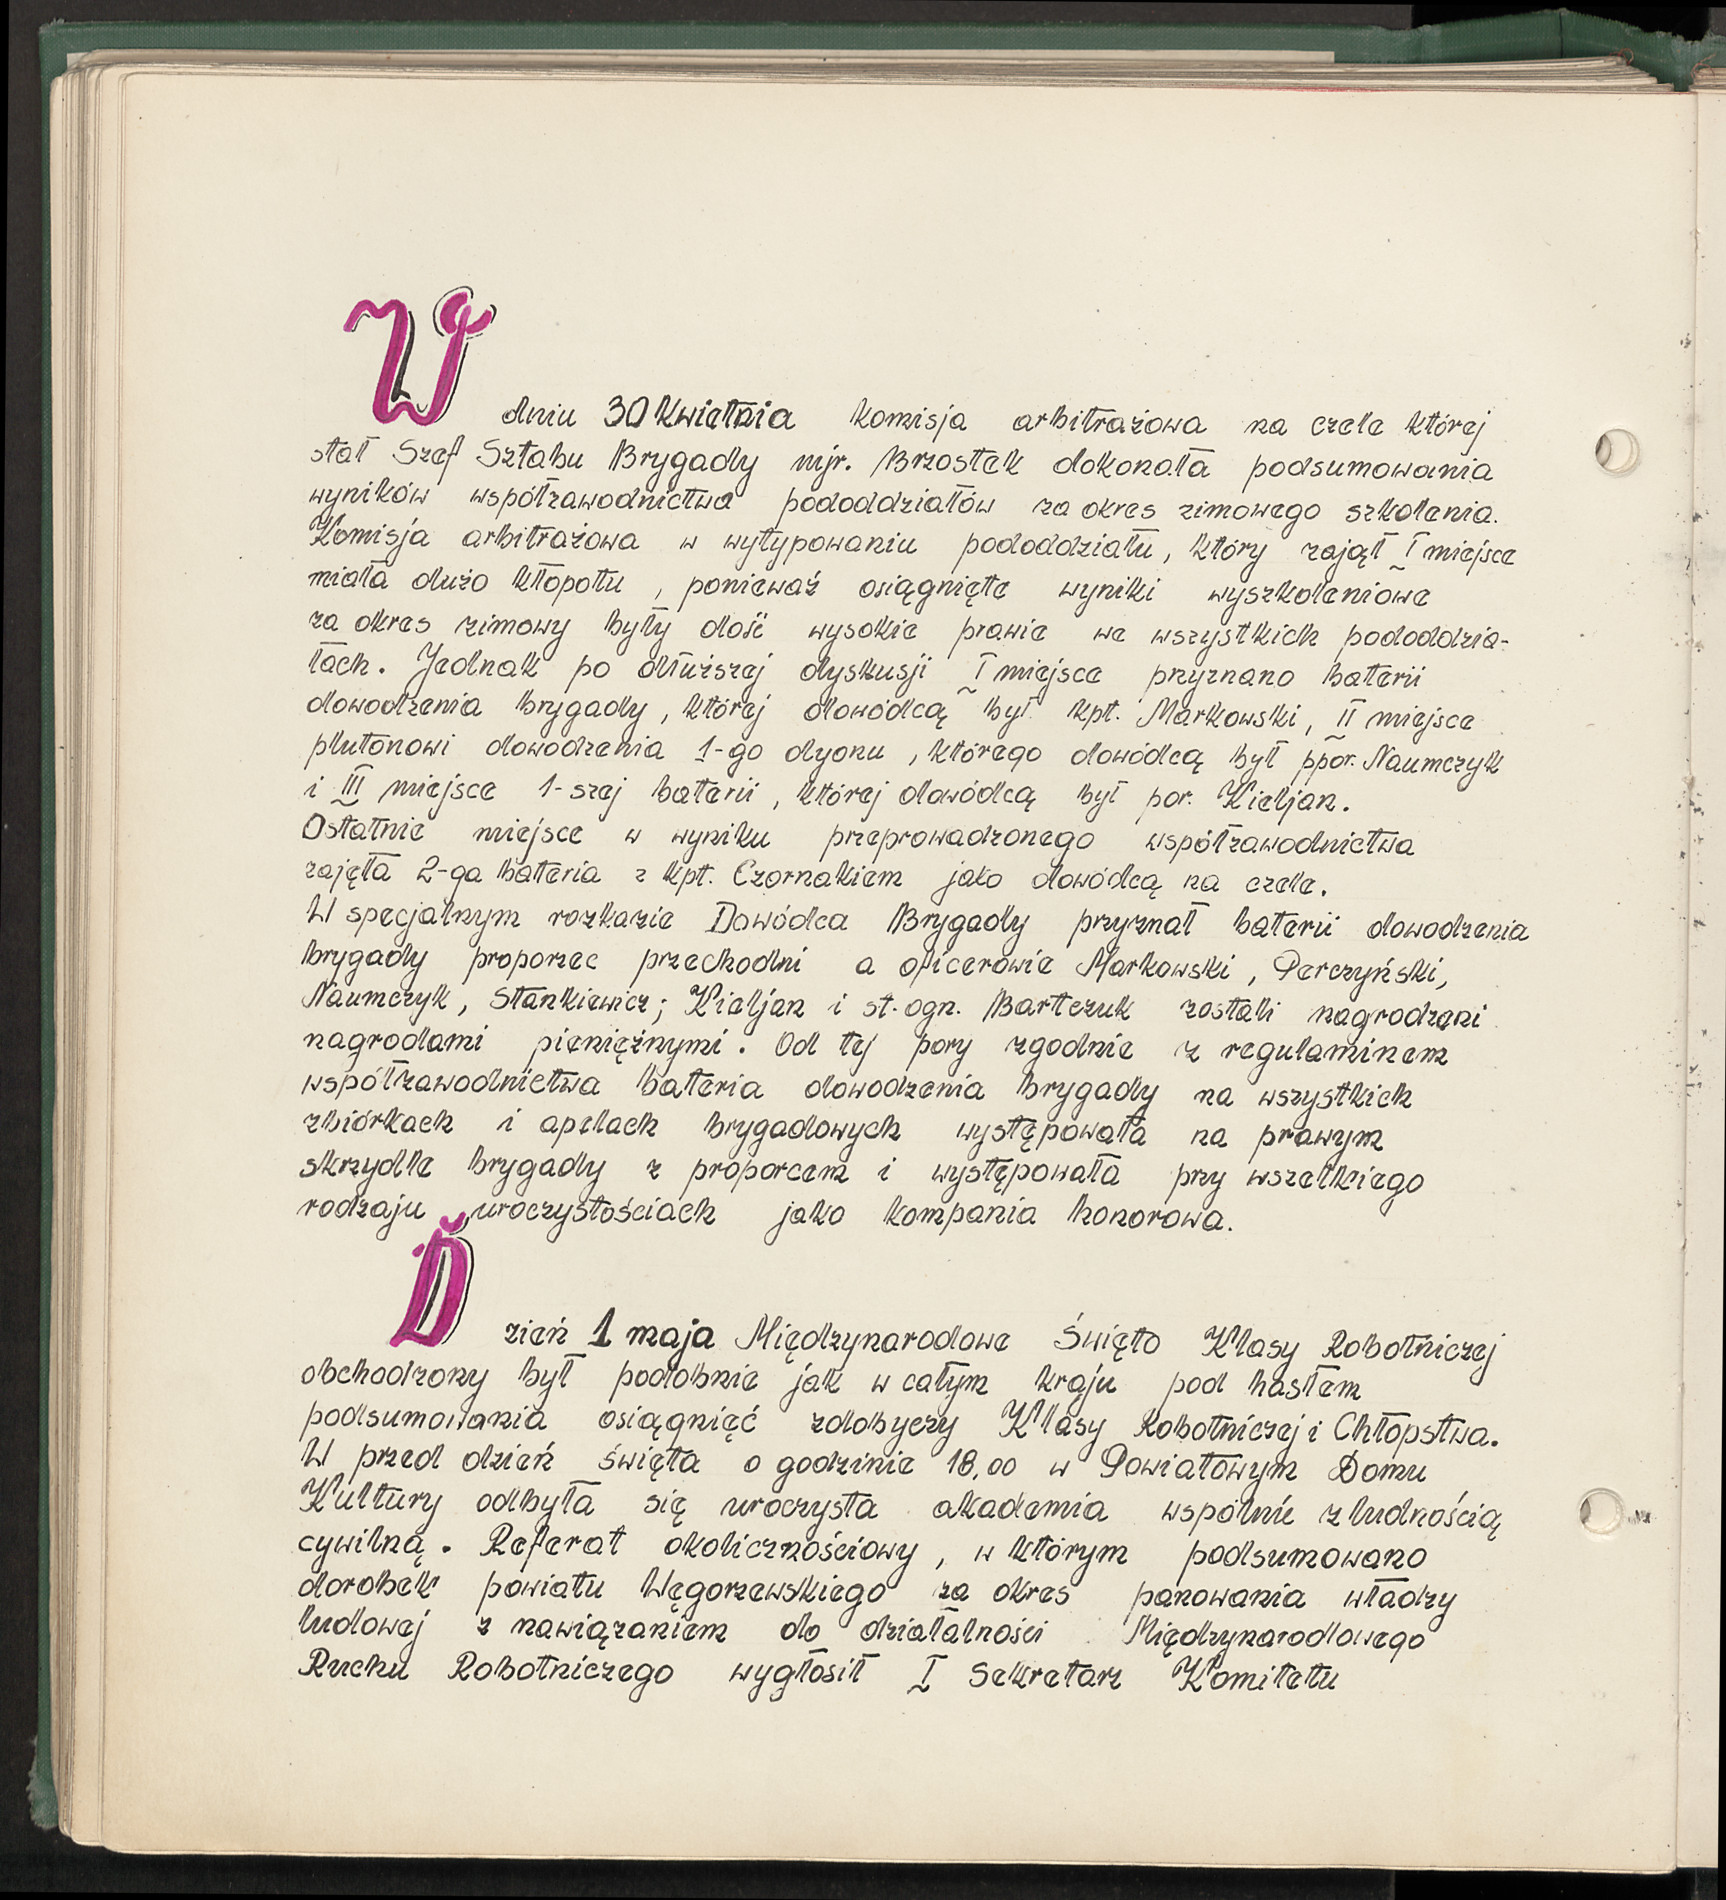 W dniu 30 kwietnia komisja arbitrażowa na czele której
stał Szef Sztabu Brygady mjr. Brzostek dokonała podsumowania
wyników współzawodnictwa pododdziałów za okres zimowego szkolenia.
Komisja arbitrażowa w wytypowaniu pododdziału, który zajął I miejsce
miała dużo kłopotu, ponieważ osiągnięte wyniki wyszkoleniowe
za okres zimowy były dość wysokie prawie we wszystkich pododdzia-
łach. Jednak po dłuższej dyskusji I miejsce przyznano baterii
dowodzenia brygady, której dowódcą był kpt. Markowski, II miejsce
plutonowi dowodzenia 1-go dyonu, którego dowódcą był ppor. Naumczyk
i III miejsce 1-szej baterii, której dowódcą był por. Kieljan.
Ostatnie miejsce w wyniku przeprowadzonego współzawodnictwa
zajęła 2-ga bateria z kpt. Czornakiem jako dowódcą na czele.
W specjalnym rozkazie Dowódca Brygady przyznał baterii dowodzenia
brygady proporzec przechodni a oficerowie Markowski, Perczyński,
Naumczyk, Stankiewicz; Kieljan i st. ogn. Bartczuk zostali nagrodzeni
nagrodami pieniężnymi. Od tej pory zgodnie z regulaminem
współzawodnictwa bateria dowodzenia brygady na wszystkich
zbiórkach i apelach brygadowych występowała na prawym
skrzydle brygady z proporcem i występowała przy wszelkiego
rodzaju uroczystościach jako kompania honorowa.
Dzień 1 maja Międzynarodowe Święto Klasy Robotniczej
obchodzony był podobnie jak w całym kraju pod hasłem
podsumowania osiągnięć zdobyczy Klasy Robotniczej i Chłopstwa.
W przed dzień święta o godzinie 18,00 w Powiatowym Domu
Kultury odbyła się uroczysta akademia wspólnie z ludnością
cywilną. Referat okolicznościowy, w którym podsumowano
dorobek powiatu Węgorzewskiego za okres panowania władzy
ludowej z nawiązaniem do działalności Międzynarodowego
Ruchu Robotniczego wygłosił I Sekretarz Komitetu